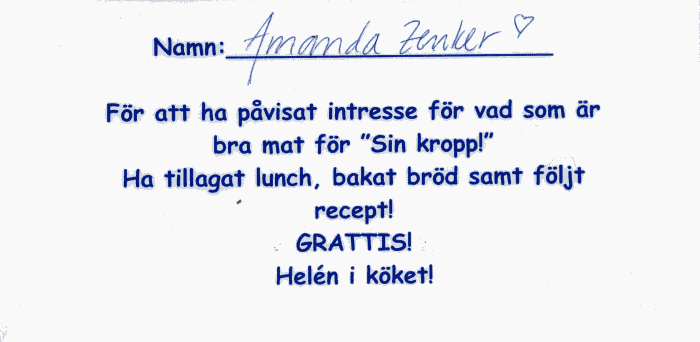 Namn: Amanda Zenker ♡
För att ha påvisat intresse för vad som är
bra mat för ”Sin kropp!”
Ha tillagat lunch, bakat bröd samt följt
recept!
GRATTIS!
Helén i köket!